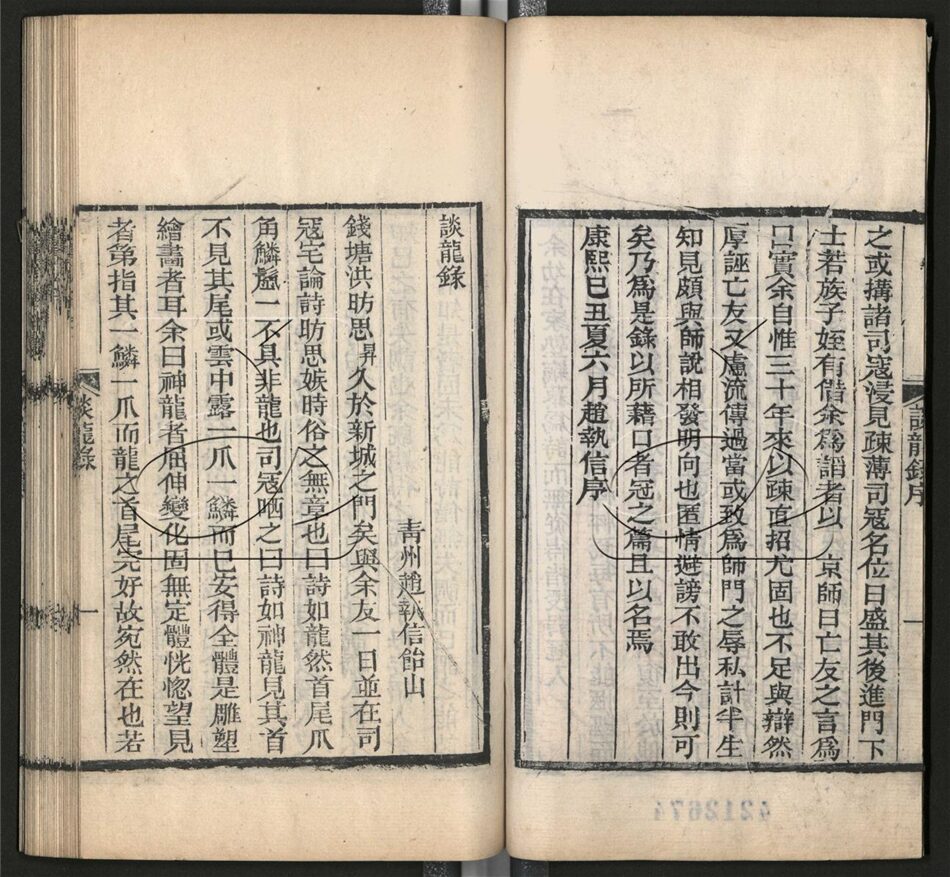 之或搆諸司寇浸見疎薄司寇名位日盛其後進門下
士若族子姪有借余爲諂者以京師日亡友之言爲
口實余自惟三十年來以疎直招尤固也不足與辯然
厚誣亡友又慮流傳過當或致爲師門之辱私計半生
知見頗與師說相發明向也匿情避謗不敢出今則可
矣乃爲是錄以所藉口者冠之篇且以名焉
康熙己丑夏六月趙執信序
談龍錄序
一
談龍錄
青州趙執信飴山
錢塘洪昉思昇久於新城之門矣與余友一日並在司
寇宅論詩昉思嫉時俗之無章也曰詩如龍然首尾爪
角鱗鬣一不具非龍也司寇哂之曰詩如神龍見其首
不見其尾或雲中露一爪一鱗而已安得全體是雕塑
繪畫者耳余曰神龍者屈伸變化固無定體恍惚望見
者第指其一鱗一爪而龍之首尾完好故宛然在也若
談龍錄
一
4212674